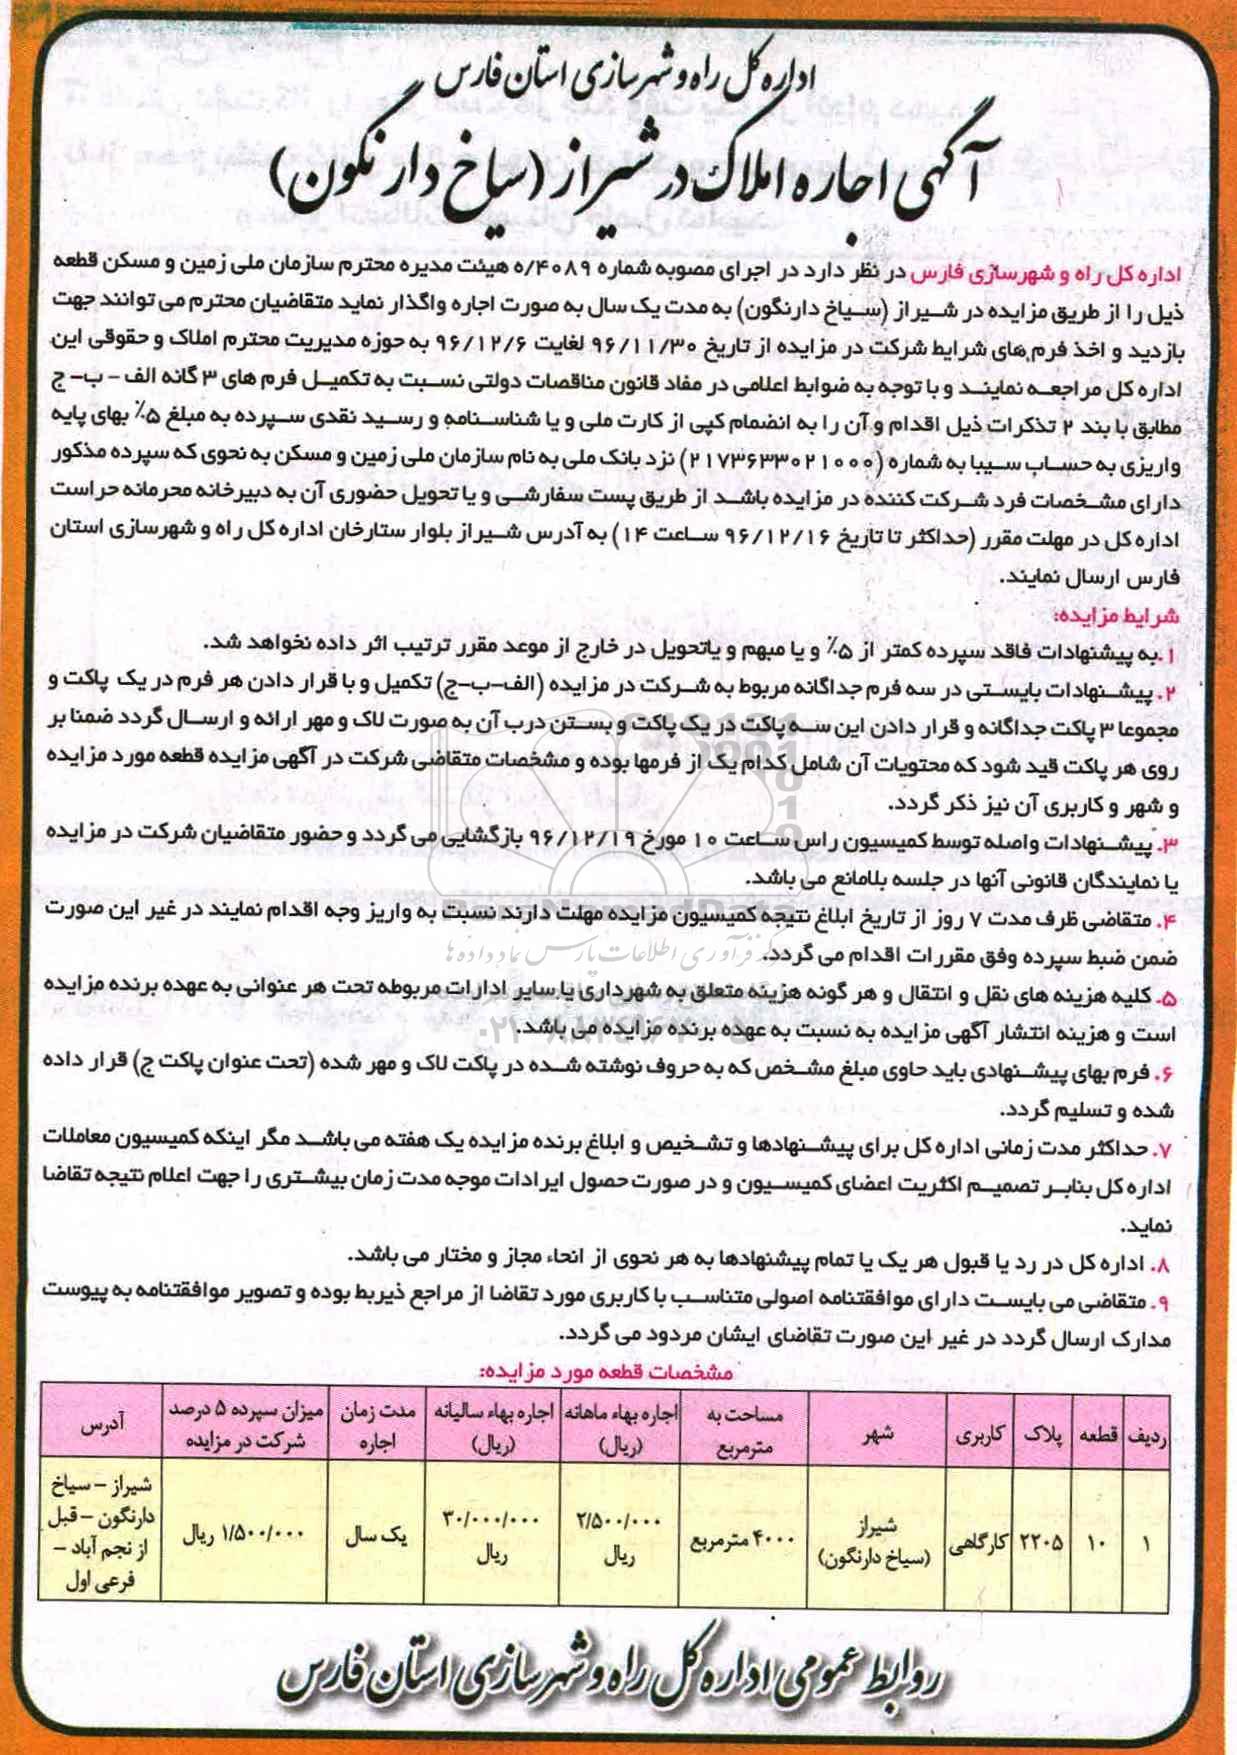 اداره کل راه و شهرسازی استان فارس
آگهی اجاره املاک در شیراز (سیاخ دارنگون)
اداره کل راه و شهرسازی فارس در نظر دارد در اجرای مصوبه شماره ۴۰۸۹/ه هیئت مدیره محترم سازمان ملی زمین و مسکن قطعه
ذیل را از طریق مزایده در شیراز (سیاخ دارنگون) به مدت یک سال به صورت اجاره واگذار نماید متقاضیان محترم می توانند جهت
بازدید و اخذ فرم های شرایط شرکت در مزایده از تاریخ ۹۶/۱۱/۳۰ لغایت ۹۶/۱۲/۶ به حوزه مدیریت محترم املاک و حقوقی این
اداره کل مراجعه نمایند و با توجه به ضوابط اعلامی در مفاد قانون مناقصات دولتی نسبت به تکمیل فرم های ۳ گانه الف - ب- ج
مطابق با بند ۲ تذکرات ذیل اقدام و آن را به انضمام کپی از کارت ملی و یا شناسنامه و رسید نقدی سپرده به مبلغ ۵٪ بهای پایه
واریزی به حساب سیبا به شماره (۲۱۷۳۶۳۳۰۲۱۰۰۰) نزد بانک ملی به نام سازمان ملی زمین و مسکن به نحوی که سپرده مذکور
دارای مشخصات فرد شرکت کننده در مزایده باشد از طریق پست سفارشی و یا تحویل حضوری آن به دبیرخانه محرمانه حراست
اداره کل در مهلت مقرر (حداکثر تا تاریخ ۹۶/۱۲/۱۶ ساعت ۱۴) به آدرس شیراز بلوار ستارخان اداره کل راه و شهرسازی استان
فارس ارسال نمایند.
شرایط مزایده:
۱.به پیشنهادات فاقد سپرده کمتر از ۵٪ و یا مبهم و یاتحویل در خارج از موعد مقرر ترتیب اثر داده نخواهد شد.
۲. پیشنهادات بایستی در سه فرم جداگانه مربوط به شرکت در مزایده (الف-ب-ج) تکمیل و با قرار دادن هر فرم در یک پاکت و
مجموعا ۳ پاکت جداگانه و قرار دادن این سه پاکت در یک پاکت و بستن درب آن به صورت لاک و مهر ارائه و ارسال گردد ضمنا بر
روی هر پاکت قید شود که محتویات آن شامل کدام یک از فرمها بوده و مشخصات متقاضی شرکت در آگهی مزایده قطعه مورد مزایده
و شهر و کاربری آن نیز ذکر گردد.
۳. پیشنهادات واصله توسط کمیسیون راس ساعت ۱۰ مورخ ۹۶/۱۲/۱۹ بازگشایی می گردد و حضور متقاضیان شرکت در مزایده
یا نمایندگان قانونی آنها در جلسه بلامانع می باشد.
۴. متقاضی ظرف مدت ۷ روز از تاریخ ابلاغ نتیجه کمیسیون مزایده مهلت دارند نسبت به واریز وجه اقدام نمایند در غیر این صورت
ضمن ضبط سپرده وفق مقررات اقدام می گردد.
۵. کلیه هزینه های نقل و انتقال و هر گونه هزینه متعلق به شهرداری یا سایر ادارات مربوطه تحت هر عنوانی به عهده برنده مزایده
است و هزینه انتشار آگهی مزایده به نسبت به عهده برنده مزایده می باشد.
۶. فرم بهای پیشنهادی باید حاوی مبلغ مشخص که به حروف نوشته شده در پاکت لاک و مهر شده (تحت عنوان پاکت ج) قرار داده
شده و تسلیم گردد.
۷. حداکثر مدت زمانی اداره کل برای پیشنهادها و تشخیص و ابلاغ برنده مزایده یک هفته می باشد مگر اینکه کمیسیون معاملات
اداره کل بنابر تصمیم اکثریت اعضای کمیسیون و در صورت حصول ایرادات موجه مدت زمان بیشتری را جهت اعلام نتیجه تقاضا
نماید.
۸. اداره کل در رد یا قبول هر یک یا تمام پیشنهادها به هر نحوی از انحاء مجاز و مختار می باشد.
۹. متقاضی می بایست دارای موافقتنامه اصولی متناسب با کاربری مورد تقاضا از مراجع ذیربط بوده و تصویر موافقتنامه به پیوست
مدارک ارسال گردد در غیر این صورت تقاضای ایشان مردود می گردد.
مشخصات قطعه مورد مزایده:
ردیف قطعه پلاک کاربری شهر مساحت به مترمربع اجاره بهاء ماهانه (ریال) اجاره بهاء سالیانه (ریال) مدت زمان اجاره میزان سپرده ۵ درصد شرکت در مزایده آدرس
۱ ۱۰ ۲۲۰۵ کارگاهی شیراز (سیاخ دارنگون) ۴۰۰۰ مترمربع ۲/۵۰۰/۰۰۰ ریال ۳۰/۰۰۰/۰۰۰ ریال یک سال ۱/۵۰۰/۰۰۰ ریال شیراز – سیاخ دارنگون – قبل از نجم آباد – فرعی اول
روابط عمومی اداره کل راه و شهرسازی استان فارس